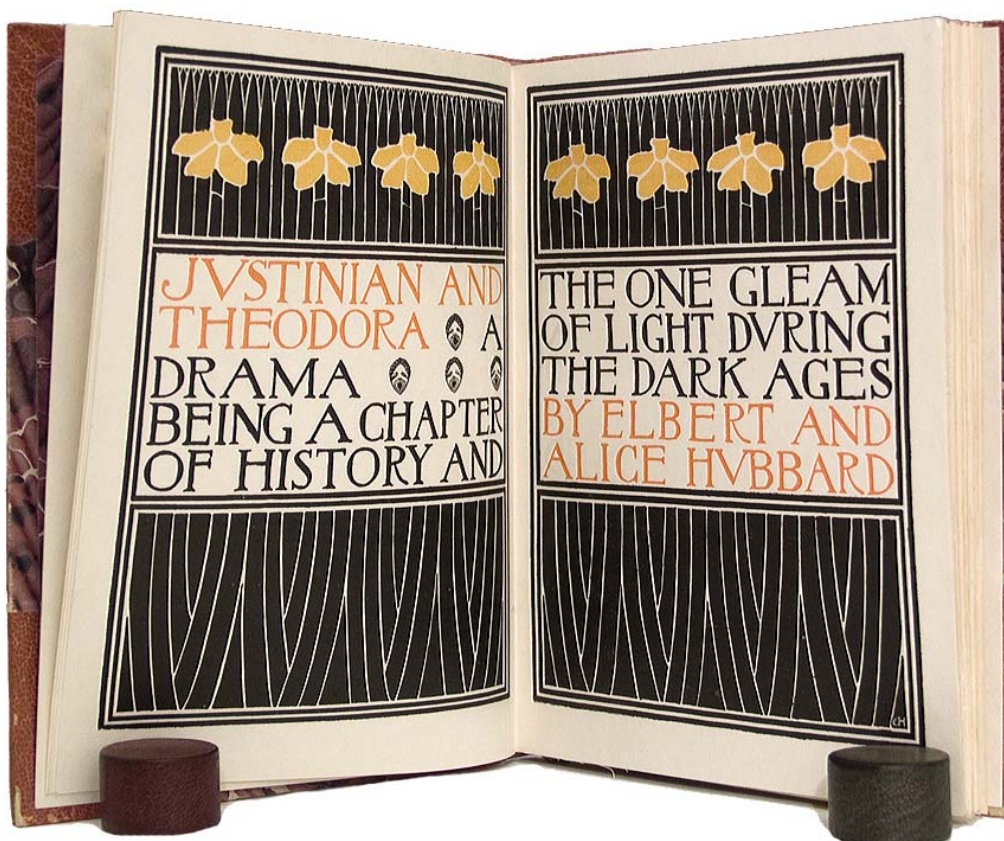 JVSTINIAN AND
THEODORA A
DRAMA
BEING A CHAPTER
OF HISTORY AND
THE ONE GLEAM
OF LIGHT DVRING
THE DARK AGES
BY ELBERT AND
ALICE HVBBARD
CH